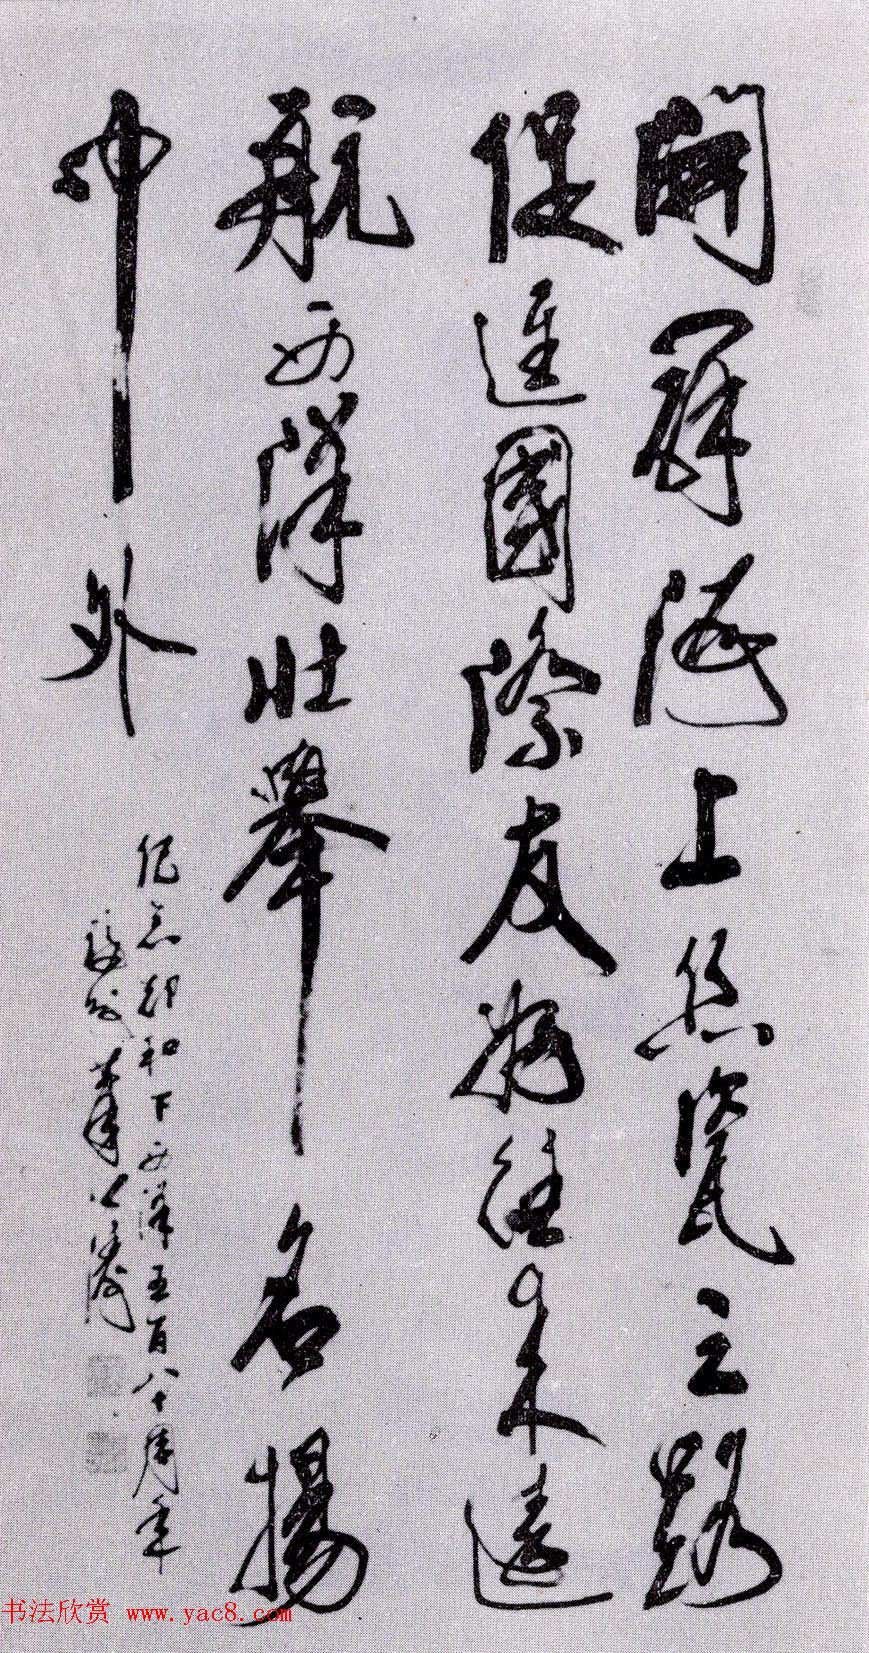 開辟海上丝瓷之路
促進國際友好往来遠
航西洋壮舉名揚
中外
纪念郑和下西洋五百八十周年
书法欣赏 www.yac8.com